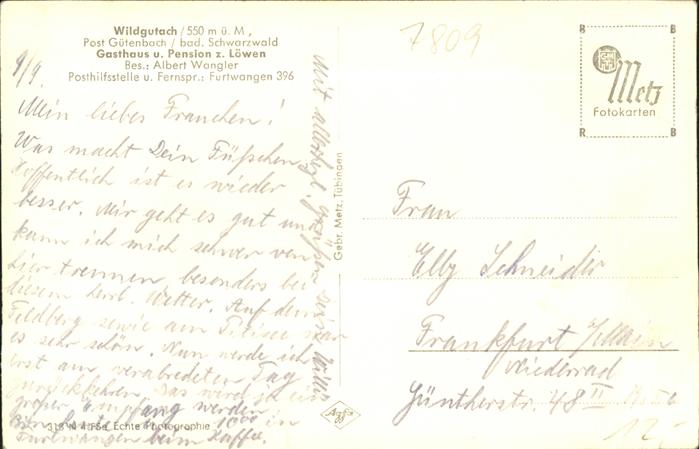 Wildgutach / 550 m ü. M.,
Post Gütenbach / bad. Schwarzwald
Gasthaus u. Pension z. Löwen
Bes.: Albert Wangler
Posthilfsstelle u. Fernspr.: Furtwangen 396
9/9.
Mein liebes Frauchen!
Was macht Dein Füßchen
Hoffentlich ist es wieder
besser. Mir geht es gut und
kann ich mich schwer von
hier trennen besonders bei
diesem herrl. Wetter. Auf dem
Feldberg sowie am Titisee war
es sehr schön. Nun werde ich
erst am verabredeten Tag
zurückkehren. Das wird ja ein
großer Empfang werden
Bin heute in
Furtwangen beim Kaffee.
Mit allerhzl. Grüßen Dein Willi
318 N 4 FSe Echte Photographie
Gebr. Metz, Tübingen
Agfa
7809
B B
Metz
Fotokarten
R B
Frau
Elly Schneider
Frankfurt /Main
Niederrad
Güntherstr. 48 II
12.-